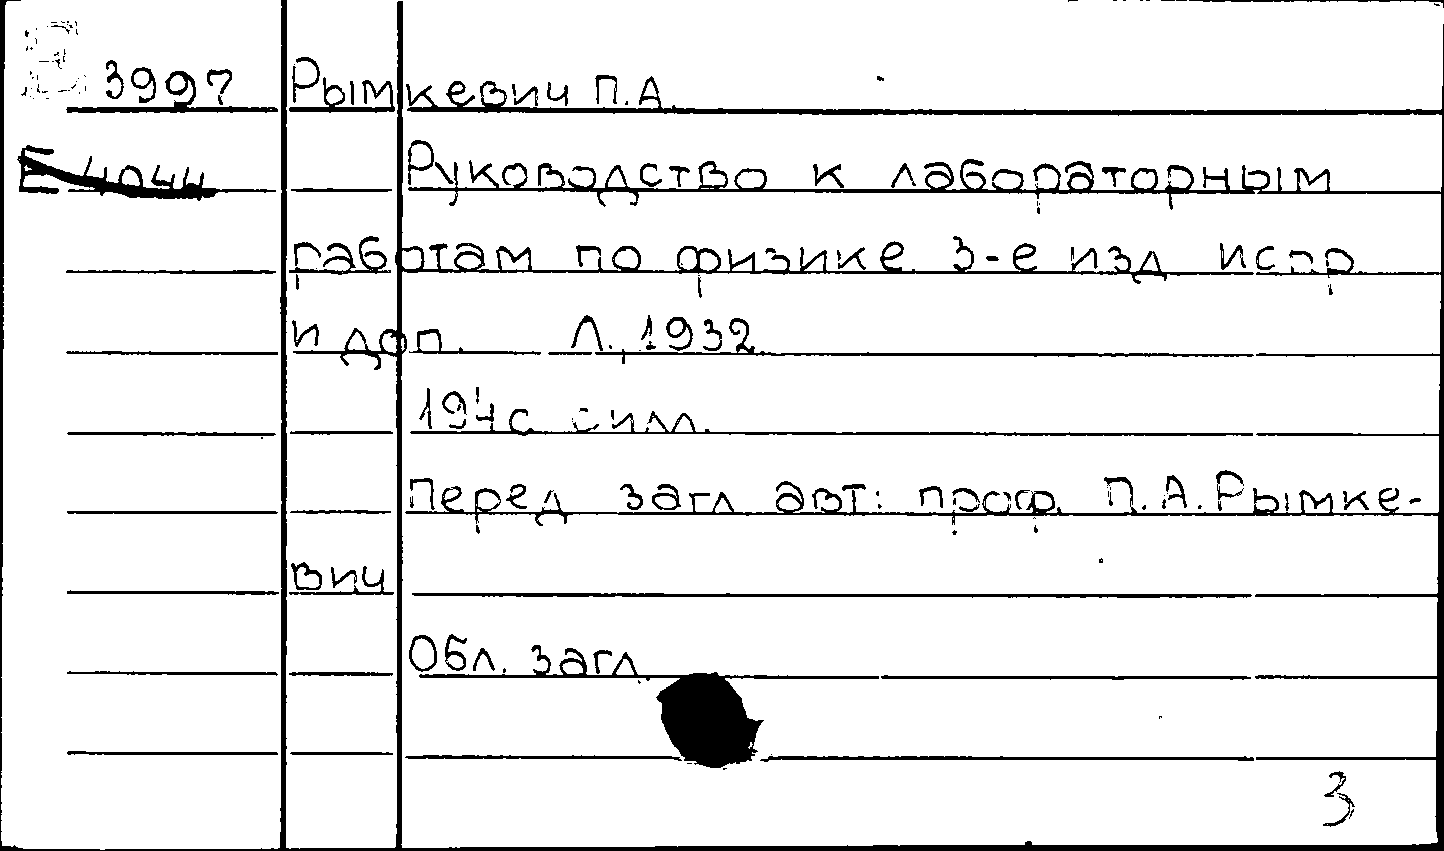 3997 Рымкевич П.А.
Е 4044 Руководство к лабораторным
работам по физике. 3-е изд. испр.
и доп. Л., 1932
194 с с илл.
Перед загл авт: проф. П.А.Рымке-
вич
Обл. загл.
3